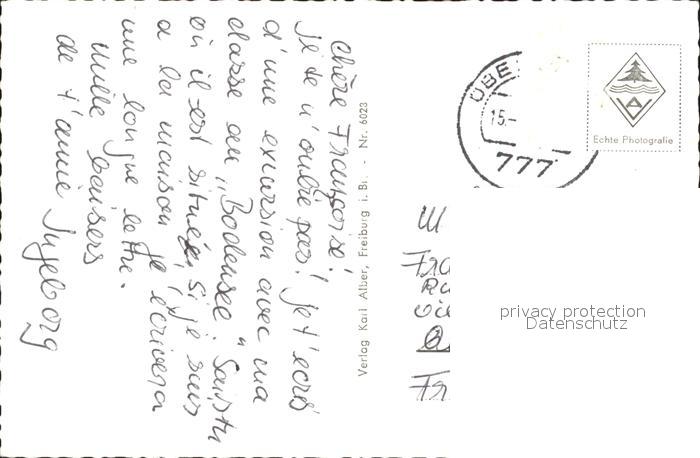 Chère Françoise!
je te n'oublie pas! je t'ecris
d'une excursion avec ma
classe au „Bodensee". Saistu
où il est situé, si je suis
a la maison je écrivera
une longue lettre.
Mille baisers
de t'amie Ingeborg
Verlag Karl Alber, Freiburg i. Br. - Nr. 6023
ÜBE
15.-
777
Echte Photografie
M
Fra
privacy protection
Datenschutz
Fr